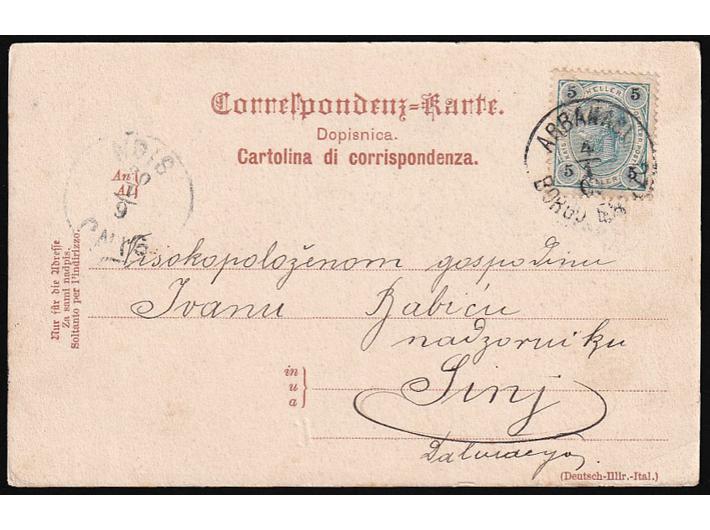 Correſpondenz=Karte.
Dopisnica.
Cartolina di corrispondenza.
5 5
HELLER
5 5
ARBANASI
4
BORGO
An
Al
9
Nur für die Adreſſe.
Za sami nadpis.
Soltanto per l'indirizzo.
Visokopoloženom gospodinu
Ivanu Babiću
nadzorniku
in
u
a
Sinj
(Deutsch-Illir.-Ital.)